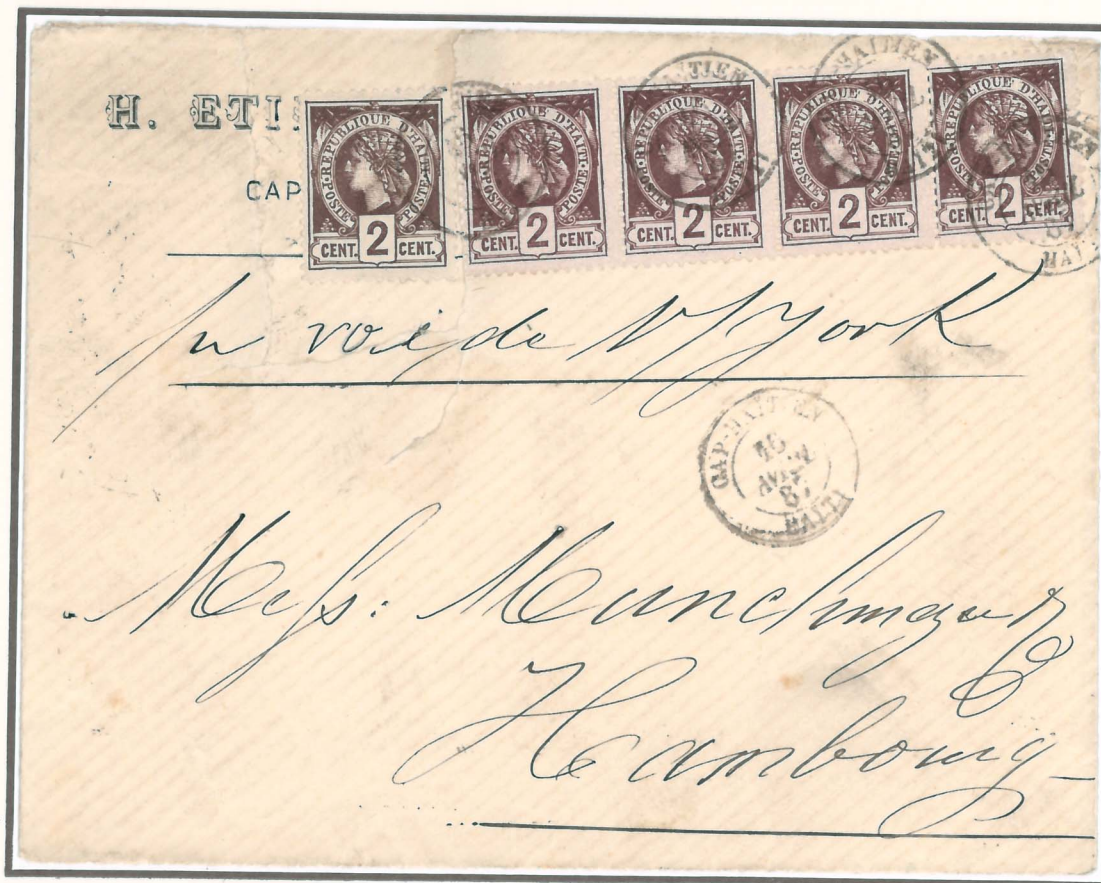 H. ETI
CAP
REPUBLIQUE D'HAITI POSTE POSTE
CENT. 2 CENT.
REPUBLIQUE D'HAITI POSTE POSTE
CENT. 2 CENT.
REPUBLIQUE D'HAITI POSTE POSTE
CENT. 2 CENT.
REPUBLIQUE D'HAITI POSTE POSTE
CENT. 2 CENT.
REPUBLIQUE D'HAITI POSTE POSTE
CENT. 2 CENT.
voie de N/York
CAP-HAITIEN
HAITI
Mess: Munchmeyer
Hambourg